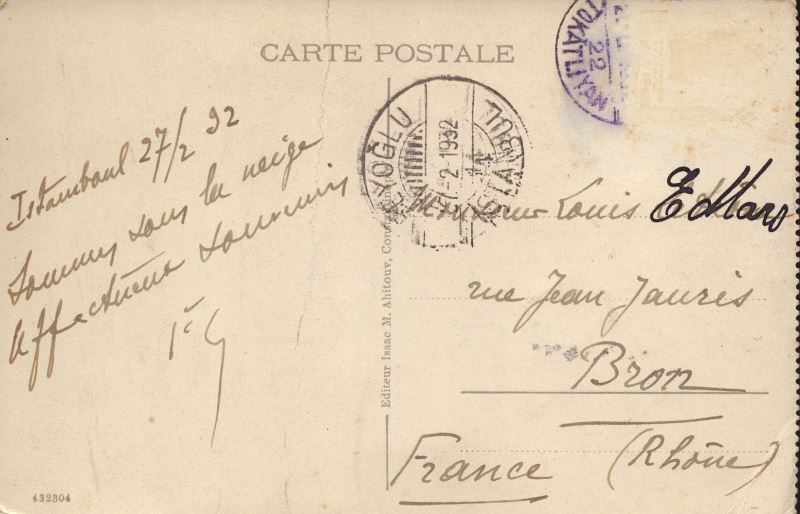 CARTE POSTALE
TOKATLIYAN
22
BEYOĞLU
27-2-1932
14
ISTANBUL
Istamboul 27/2 32
Sommes sous la neige
Affectueux souvenirs
Monsieur Louis
rue Jean Jaurès
Bron
France (Rhône)
Editeur Isaac M. Ahitouv,
432304